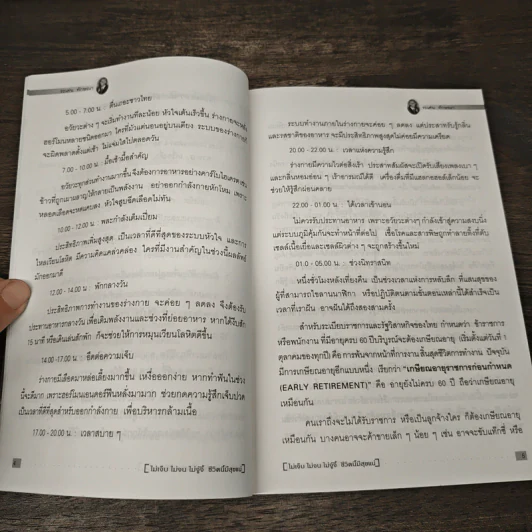 5.00 - 7.00 น. ตื่นเถอะชาวไทย
อวัยวะต่าง ๆ จะเริ่มทำงานทีละน้อย หัวใจเต้นเร็วขึ้น ร่างกายจะหลั่ง
ฮอร์โมนหลายชนิดออกมา ใครที่มัวแต่นอนอยู่บนเตียง ระบบของร่างกายก็
จะผิดพลาดตั้งแต่เช้า ไม่แจ่มใสไปตลอดวัน
7.00 - 10.00 น. มื้อเช้ามื้อสำคัญ
อวัยวะทุกส่วนทำงานมากขึ้น จึงต้องการอาหารอย่างคาร์โบไฮเดรตเช่น
ข้าวที่ถูกเผาผลาญให้กลายเป็นพลังงาน อย่าออกกำลังกายหักโหม เพราะ
หลอดเลือดจะหดแคบลง หัวใจสูบฉีดเลือดไม่ทัน
10.00 - 12.00 น. พละกำลังเต็มเปี่ยม
ประสิทธิภาพเพิ่มสูงสุด เป็นเวลาที่ดีที่สุดของระบบหัวใจ และการ
ไหลเวียนโลหิต มีความคิดแคล่วคล่อง ใครที่มีงานสำคัญในช่วงนี้ผลลัพธ์
มักออกมาดี
12.00 - 14.00 น. พักกลางวัน
ประสิทธิภาพการทำงานของร่างกาย จะค่อย ๆ ลดลง จึงต้องรับ
ประทานอาหารกลางวัน เพื่อเติมพลังงานและช่วงที่ย่อยอาหาร หากได้งีบสัก
15 นาที หรือเดินเล่นสักพัก ก็จะช่วยให้การหมุนเวียนโลหิตดีขึ้น
14.00 -17.00 น. อึดต่อความเจ็บ
ร่างกายมีเลือดมาหล่อเลี้ยงมากขึ้น เหงื่อออกง่าย หากทำฟันในช่วง
นี้จะดีมาก เพราะฮอร์โมนเอนดอร์ฟินหลั่งมามาก ช่วยกดความรู้สึกเจ็บปวด
เป็นเวลาที่ดีที่สุดสำหรับออกกำลังกาย เพื่อบริหารกล้ามเนื้อ
17.00 -20.00 น. เวลาสบาย ๆ
ไม่เจ็บ ไม่จน ไม่จู้จี้ ชีวิตนี้มีสุขแน่
ระบบทำงานภายในร่างกายจะค่อย ๆ ลดลง แต่ประสาทรับรู้กลิ่น
และรสชาติของอาหาร จะมีประสิทธิภาพสูงสุดไม่ค่อยมีความเครียด
20.00 - 22.00 น. เวลาแห่งความรู้สึก
ร่างกายมีความไวต่อสิ่งเร้า ประสาทสัมผัสจะเปิดรับเสียงเพลงเบา ๆ
และกลิ่นหอมอ่อน ๆ เร้าอารมณ์ได้ดี เครื่องดื่มที่มีแอลกอฮอล์เล็กน้อย จะ
ช่วยให้รู้สึกผ่อนคลาย
22.00 - 01.00 น. ได้เวลาเข้านอน
ไม่ควรรับประทานอาหาร เพราะอวัยวะต่างๆกำลังเข้าสู่ความสงบนิ่ง
แต่ระบบภูมิคุ้มกันจะทำหน้าที่ต่อไป เชื้อโรคและสารพิษถูกทำลายทิ้งที่ตับ
เซลล์เนื้อเยื่อและเซลล์ผิวต่าง ๆ จะถูกสร้างขึ้นใหม่
01.0 - 05.00 น. ช่วงนิทราสนิท
หนึ่งชั่วโมงหลังเที่ยงคืน เป็นช่วงเวลาแห่งการหลับลึก ที่แสนสุขของ
ผู้ที่สามารถไขลานนาฬิกา หรือปฏิบัติตนตามขั้นตอนเหล่านี้ได้สำเร็จเป็น
เวลาที่เราฝัน อาจฝันได้ถึงสองสามครั้ง
สำหรับระเบียบราชการและรัฐวิสาหกิจของไทย กำหนดว่า ข้าราชการ
หรือพนักงาน ที่มีอายุครบ 60 ปีบริบูรณ์จะต้องเกษียณอายุ เริ่มตั้งแต่วันที่ 1
ตุลาคมของทุกปี คือ การพ้นจากหน้าที่การงาน สิ้นสุดชีวิตการทำงาน ปัจจุบัน
มีการเกษียณอายุอีกแบบหนึ่ง เรียกว่า "เกษียณอายุราชการก่อนกำหนด
(EARLY RETIREMENT)" คือ อายุยังไม่ครบ 60 ปี ถือว่าเกษียณอายุ
เหมือนกัน
คนเราถึงจะไม่ได้รับราชการ หรือเป็นลูกจ้างใคร ก็ต้องเกษียณอายุ
เหมือนกัน บางคนอาจจะค้าขายเล็ก ๆ น้อย ๆ เช่น อาจจะขับแท็กซี่ หรือ
ไม่เจ็บ ไม่จน ไม่จู้จี้ ชีวิตนี้มีสุขแน่